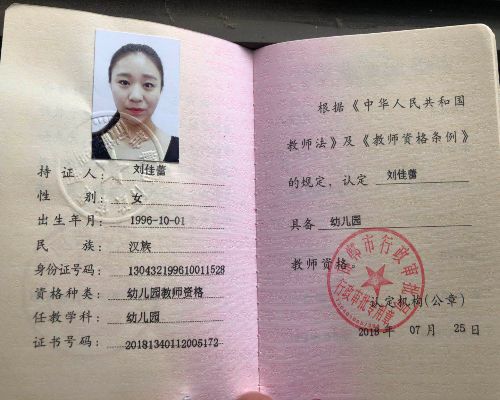 持 证 人： 刘佳蕾
性 别： 女
出生年月： 1996-10-01
民 族： 汉族
身份证号码： 130432199610011528
资格种类： 幼儿园教师资格
任教学科： 幼儿园
证书号码： 20181340112005172
根据《中华人民共和国
教师法》及《教师资格条例》
的规定，认定 刘佳蕾
具备 幼儿园
教师资格。
认定机构(公章)
2018 年 07 月 25 日
市行政审批局
行政审批专用章